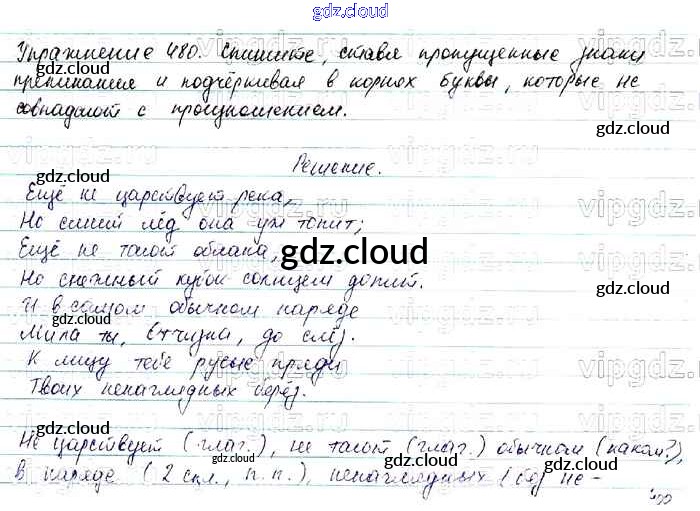 gdz.cloud
Упражнение 480. Спишите, ставя пропущенные знаки
препинания и подчёркивая в корнях буквы, которые не
совпадают с произношением.
gdz.cloud
gdz.cloud
Решение.
gdz.cloud
Ещё не царствует река,
Но синий лёд она уж топит;
gdz.cloud
gdz.cloud
Ещё не тают облака,
gdz.cloud
Но снежный кубок солнцем допит.
И в самом обычном наряде
gdz.cloud
gdz.cloud
Мила ты, Отчизна, до слёз.
gdz.cloud
К лицу тебе русые пряди
Твоих ненаглядных берёз.
gdz.cloud
gdz.cloud
Не царствует (глаг.), не тают (глаг.) обычном (каком?),
в наряде (2 скл., п.п.), ненаглядных (без не-
gdz.cloud
gdz.cloud